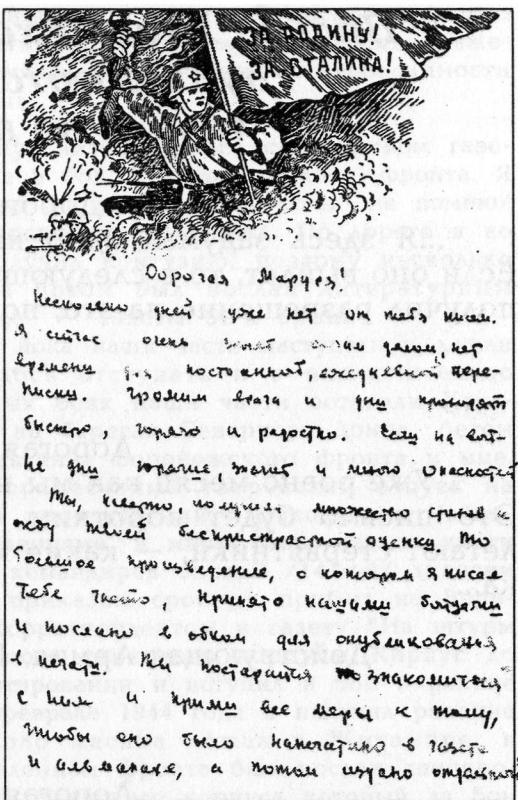 ЗА РОДИНУ!
ЗА СТАЛИНА!
Дорогая Маруся!
Несколько дней уже нет от тебя писем.
Я сейчас очень занят и, на
времени для постоянной, ежедневной пере-
писки. Громим врага дни проходят
быстро, горячо и радостно. Если на вой-
не дни горячие, значит и много опасностей
Ты, наверно, множество стихов и
жду твоей беспристрастной оценки. То
большое произведение, о котором я писал
тебе часто, принято нашими бойцами
и послано в обком для опубликования
в печати. Ты постарайся познакомиться
с ним. Прими все меры к тому,
чтобы оно было напечатано в газете
и альманахе, а потом издано отдельной